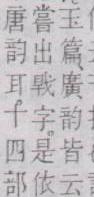 玉篇、廣韵皆云
嘗出戰字。是依
唐韵耳。十四部